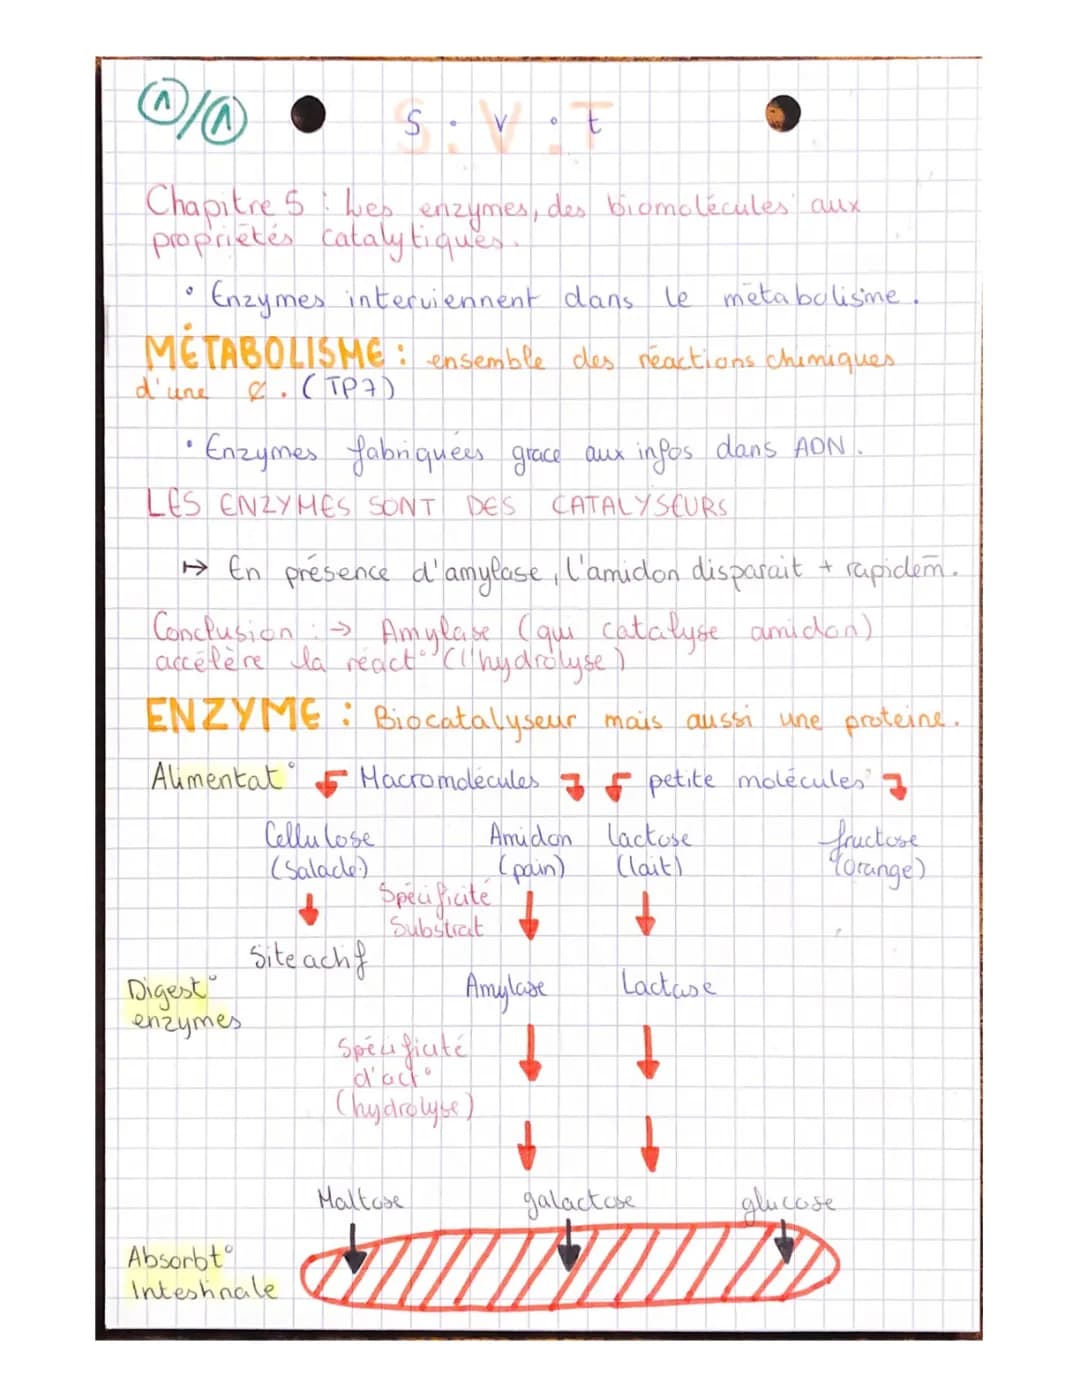 1/1
S . V . t
Chapitre 5 : Les enzymes, des biomolécules aux
propriétés catalytiques.
• Enzymes interviennent dans le métabolisme.
MÉTABOLISME : ensemble des réactions chimiques
d'une ¢. (TP7)
• Enzymes fabriquées grace aux infos dans ADN.
LES ENZYMES SONT DES CATALYSEURS
↦ En présence d'amylase, l'amidon disparait + rapidem̄.
Conclusion : → Amylase (qui catalyse amidon)
accélère la réact° (l'hydrolyse)
ENZYME : Biocatalyseur mais aussi une proteine.
Alimentat° Macromolécules petite molécules
Cellulose Amidon lactose fructose
(Salade) (pain) (lait) (Orange)
Spécificité
Substrat
Site actif
Digest° Amylase Lactase
enzymes
Spécificité
d'act°
(hydrolyse)
Maltose galactose glucose
Absorbt°
Intestinale